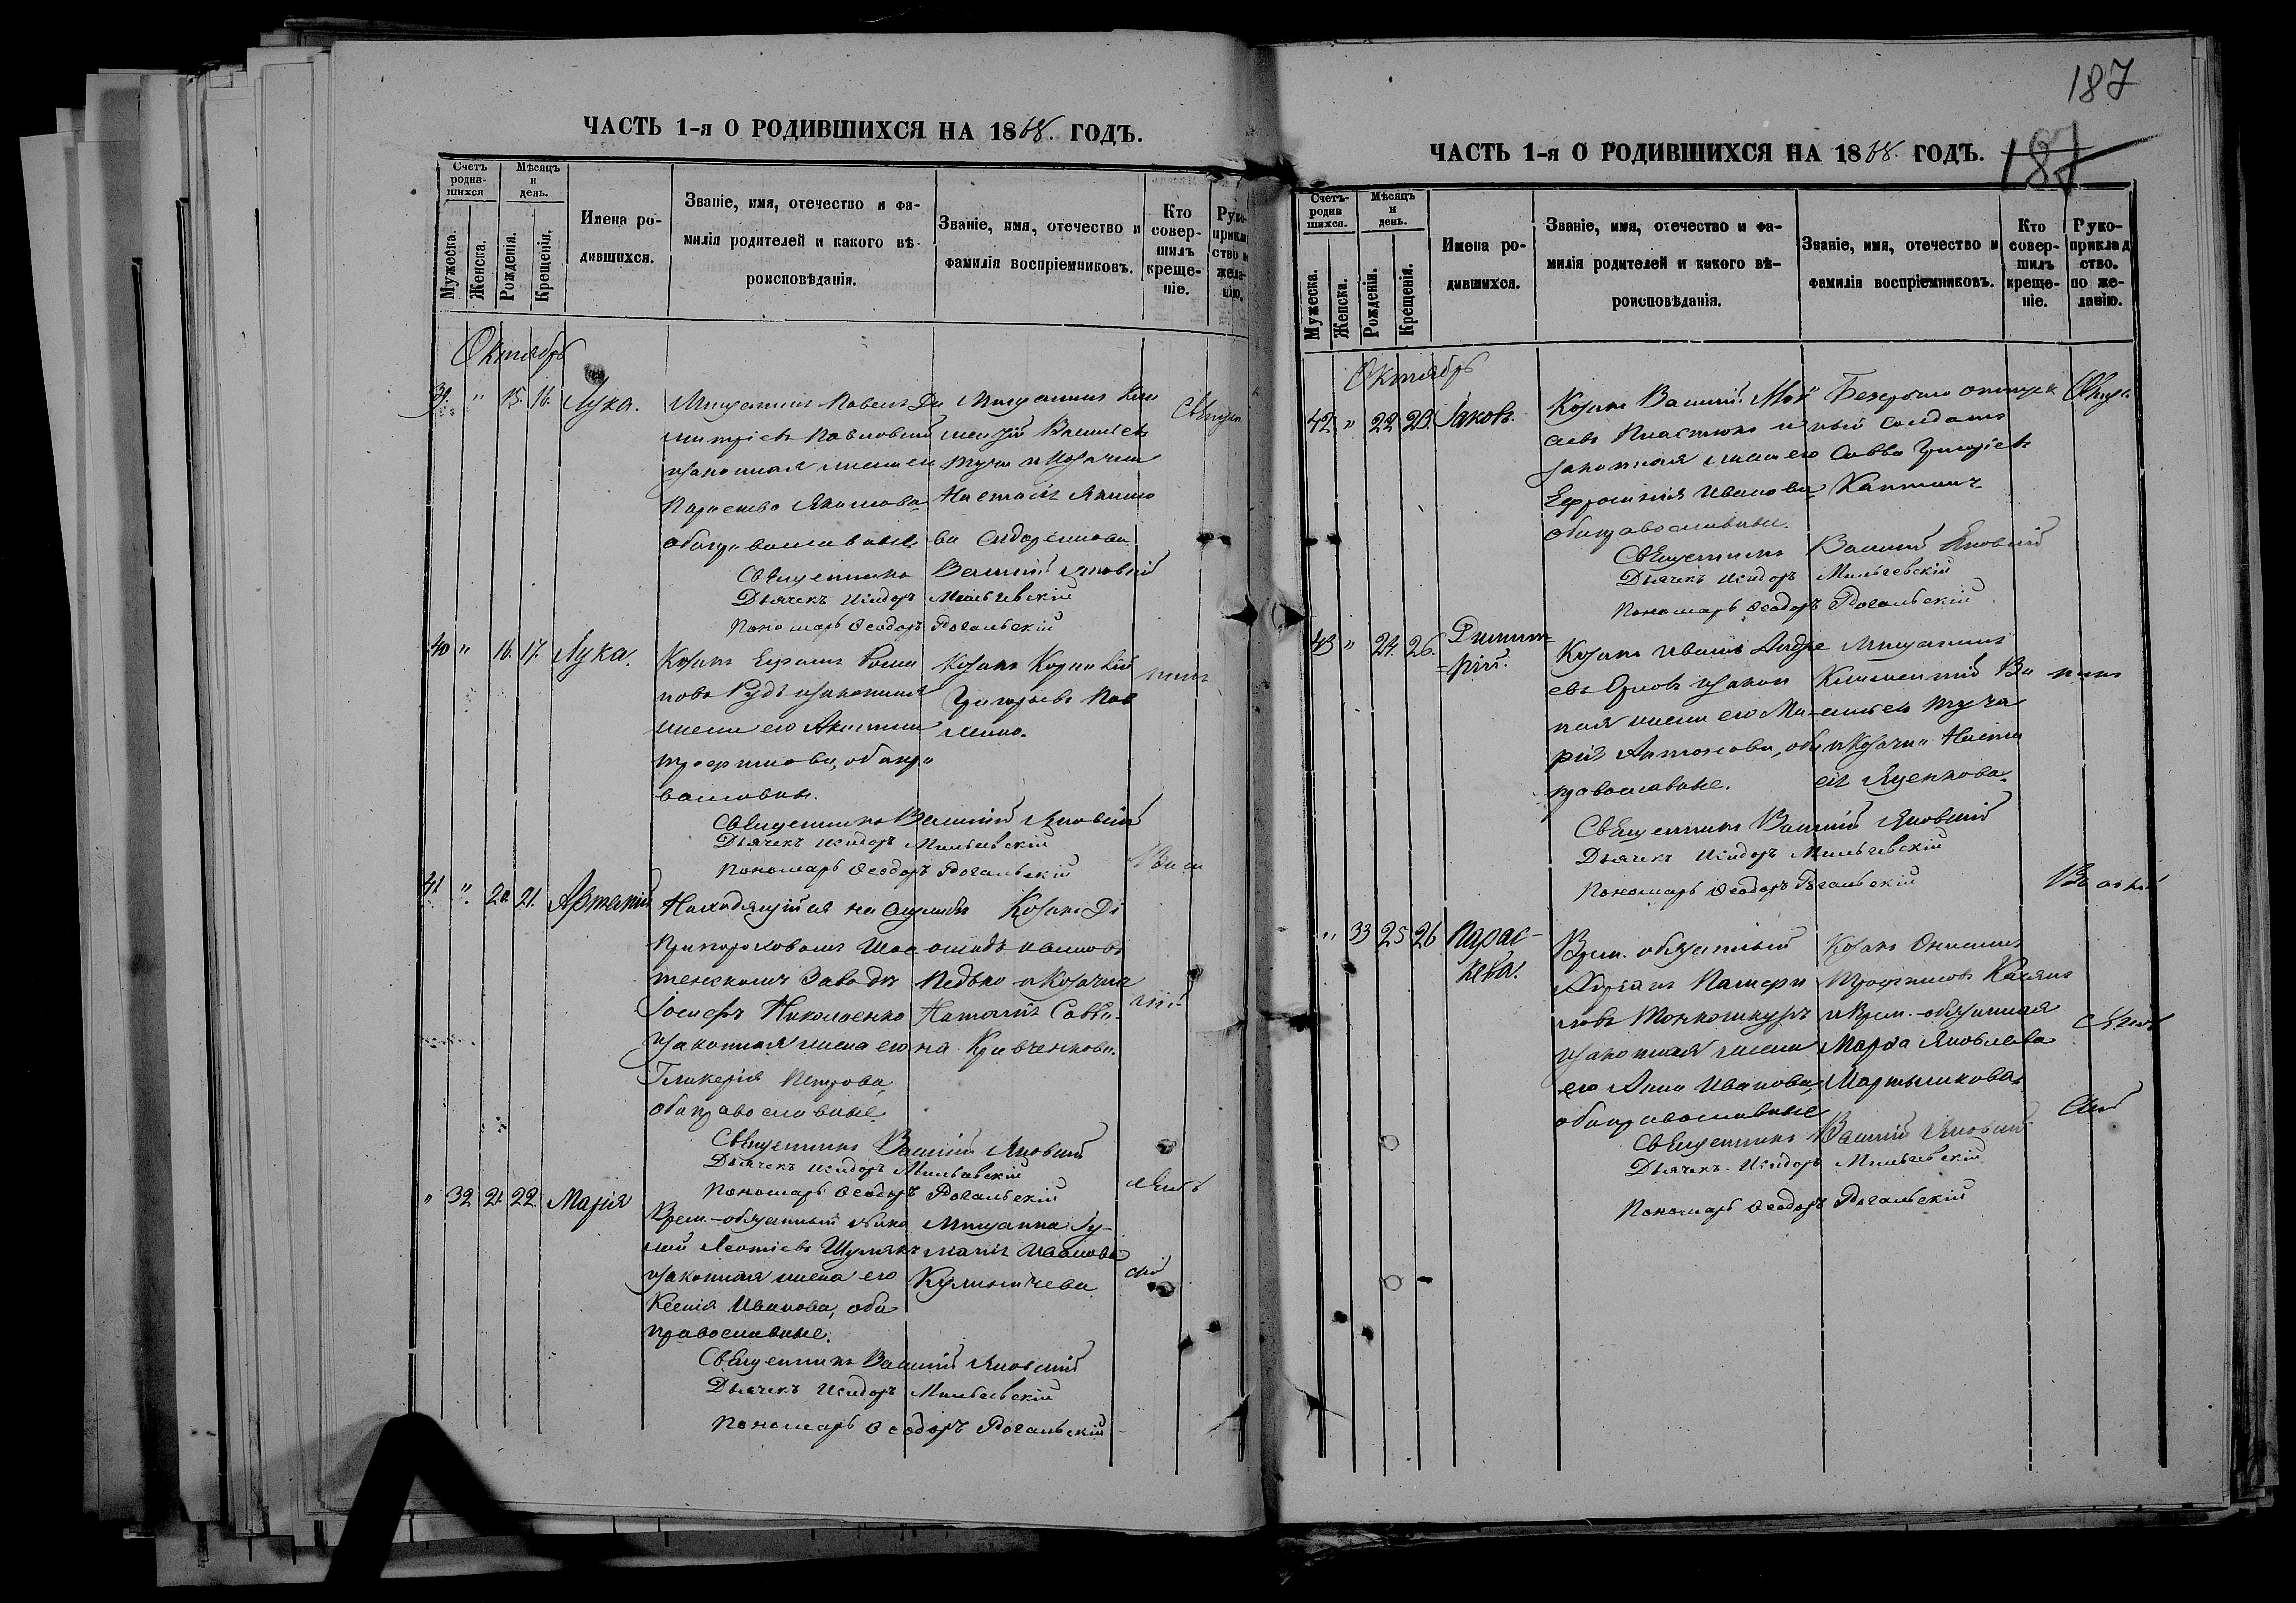 ЧАСТЬ 1-я О РОДИВШИХСЯ НА 1868. ГОДЪ.
Счетъ родив-шихся
Мѣсяцъ и день.
Мужеска.
Женска.
Рожденія.
Крещенія.
Имена ро-
дившихся.
Званіе, имя, отечество и фа-
милія родителей и какого вѣ-
роисповѣданія.
Званіе, имя, отечество и
фамилія воспріемниковъ.
Кто совер-шилъ креще-ніе.
Руко-прикла ство по жела-нію.
Октябрь
39. " 15. 16. Лука.
Мещанинъ Павелъ Ди
митріевъ Павловскій
и законная жена его
Параскева Якимова
оба православные
Мещанинъ Кли
ментій Васильевъ
Туча и Козачка
Настасія Якимо
ва Сидоренкова.
Священникъ Василій Яновскій
Дьячекъ Исидоръ Мильчевскій
Пономарь Ѳеодоръ Рогальскій
40 " 16. 17. Лука.
Козакъ Ефимъ Рома
новъ Рудь и законная
жена его Акилина
Трофимова, оба пра
вославные.
Козакъ Корнилій
Григорьевъ Пав
ленко.
Священникъ Василій Яновскій
Дьячекъ Исидоръ Мильчевскій
Пономарь Ѳеодоръ Рогальскій
41 " 20. 21. Артемій
Находящійся на службѣ
Іосифъ Николаенко
и законная жена его
Гликерія Петрова,
оба православные
Козакъ Ді
омидъ Ивановъ
Педько и Козачка
Наталія Савви-
на Кривченкова.
Священникъ Василій Яновскій
Дьячекъ Исидоръ Мильчевскій
Пономарь Ѳеодоръ Рогальскій
" 32 21. 22. Марія
Врем.-обязанный
Леонтіевъ Шулякъ
и законная жена его
Ксенія Иванова, оба
православные.
Мещанка Іу-
ліанія Иванова
Кулиничева
Священникъ Василій Яновскій
Дьячекъ Исидоръ Мильчевскій
Пономарь Ѳеодоръ Рогальскій
187
187
ЧАСТЬ 1-я О РОДИВШИХСЯ НА 1868. ГОДЪ.
Счетъ-родив шихся.
Мѣсяцъ и день.
Мужеска.
Женска.
Рожденія.
Крещенія.
Имена ро-
дившихся.
Званіе, имя, отечество и фа-
милія родителей и какого вѣ-
роисповѣданія.
Званіе, имя, отечество и
фамилія воспріемниковъ.
Кто совер-шилъ креще-ніе.
Руко-приклад ство. по же-ланію.
Октябрь
42. " 22 23. Іаковъ.
Козакъ Василій Мои
сеевъ Пластюнъ и
законная жена его
Ефросинія Иванова
оба православные.
Безсрочно отпуск
ный солдатъ
Савва Григорьевъ
Священникъ Василій Яновскій
Дьячекъ Исидоръ Мильчевскій
Пономарь Ѳеодоръ Рогальскій
43 " 24. 26. Димит=
=рій.
Козакъ Иванъ Андре
евъ и закон
ная жена его Ма-
рія Антонова, оба
православные.
Мещанинъ
Климентій Ва
сильевъ Туча
и Козачка Наста
сія Яценкова.
Священникъ Василій Яновскій
Дьячекъ Исидоръ Мильчевскій
Пономарь Ѳеодоръ Рогальскій
" 33 25 26 Парас-
кева.
Врем. обязанный
Тонкошкуръ
и законная жена
его Анна Иванова,
оба православные
Козакъ Онисимъ
Трофимовъ
и Врем.-обязанная
Марѳа Яковлева
Мартынкова.
Священникъ Василій Яновскій
Дьячекъ Исидоръ Мильчевскій
Пономарь Ѳеодоръ Рогальскій